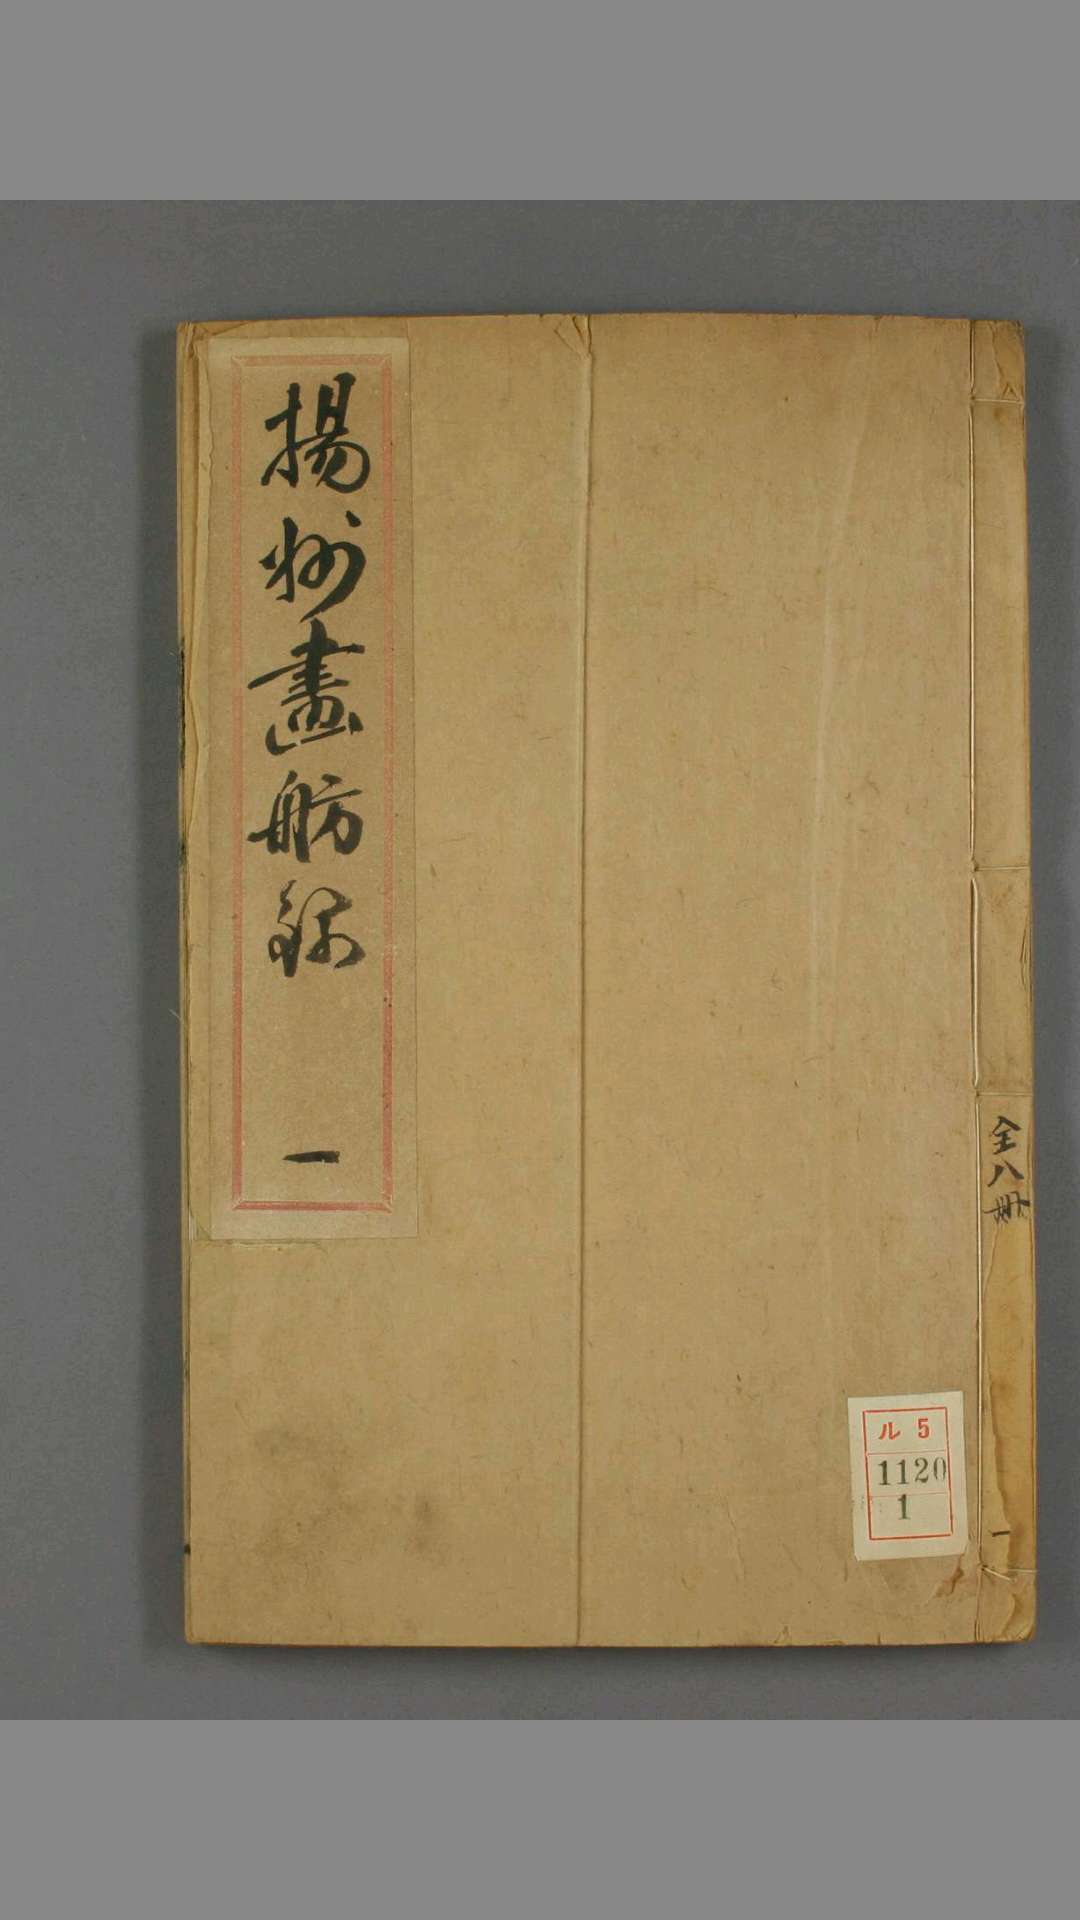 揚州畫舫録
一
全八冊
一
ル 5
1120
1